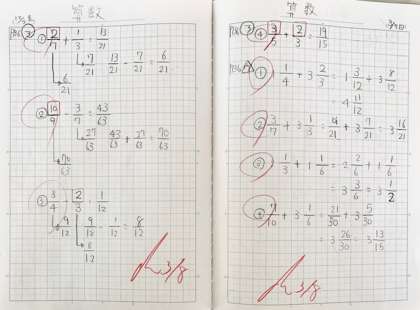 算数
① 2/7 + 1/3 = 13/21
7/21 13/21 - 7/21 = 6/21
6/21
② 10/9 - 3/7 = 43/63
27/63 43/63 + 27/63 = 70/63
70/63
③ 3/4 - 2/3 = 1/12
9/12 9/12 - 1/12 = 8/12
8/12
3/8
算数
④ 3/5 + 2/3 = 19/15
① 1/4 + 3 2/3 = 1 3/12 + 3 8/12
= 4 11/12
② 3/7 + 3 1/3 = 9/21 + 3 7/21 = 3 16/21
③ 1/3 + 1 1/6 = 2 2/6 + 1 1/6
= 3 3/6 = 3 1/2
④ 7/10 + 3 1/6 = 21/30 + 3 5/30
= 3 26/30 = 3 13/15
3/8